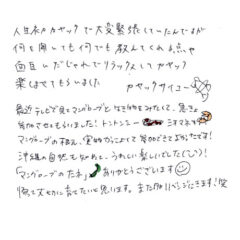 人生初カヤックで大変緊張していたんですが
何を聞いても何でも教えてくれる点や
面白いだじゃれでリラックスしてカヤック
楽しませてもらいました
カヤックサイコー
最近テレビで見てマングローブと生き物をみたくて、急きょ
参加させてもらいました！トントンミー ミナミ
マングローブの林を、実物から参加できてよかったです！
沖縄の自然も知れて、うれしい楽しいでした
「マングローブのたね」ありがとうございます
帰って大切に育てたいと思います。また リベンジにきます！